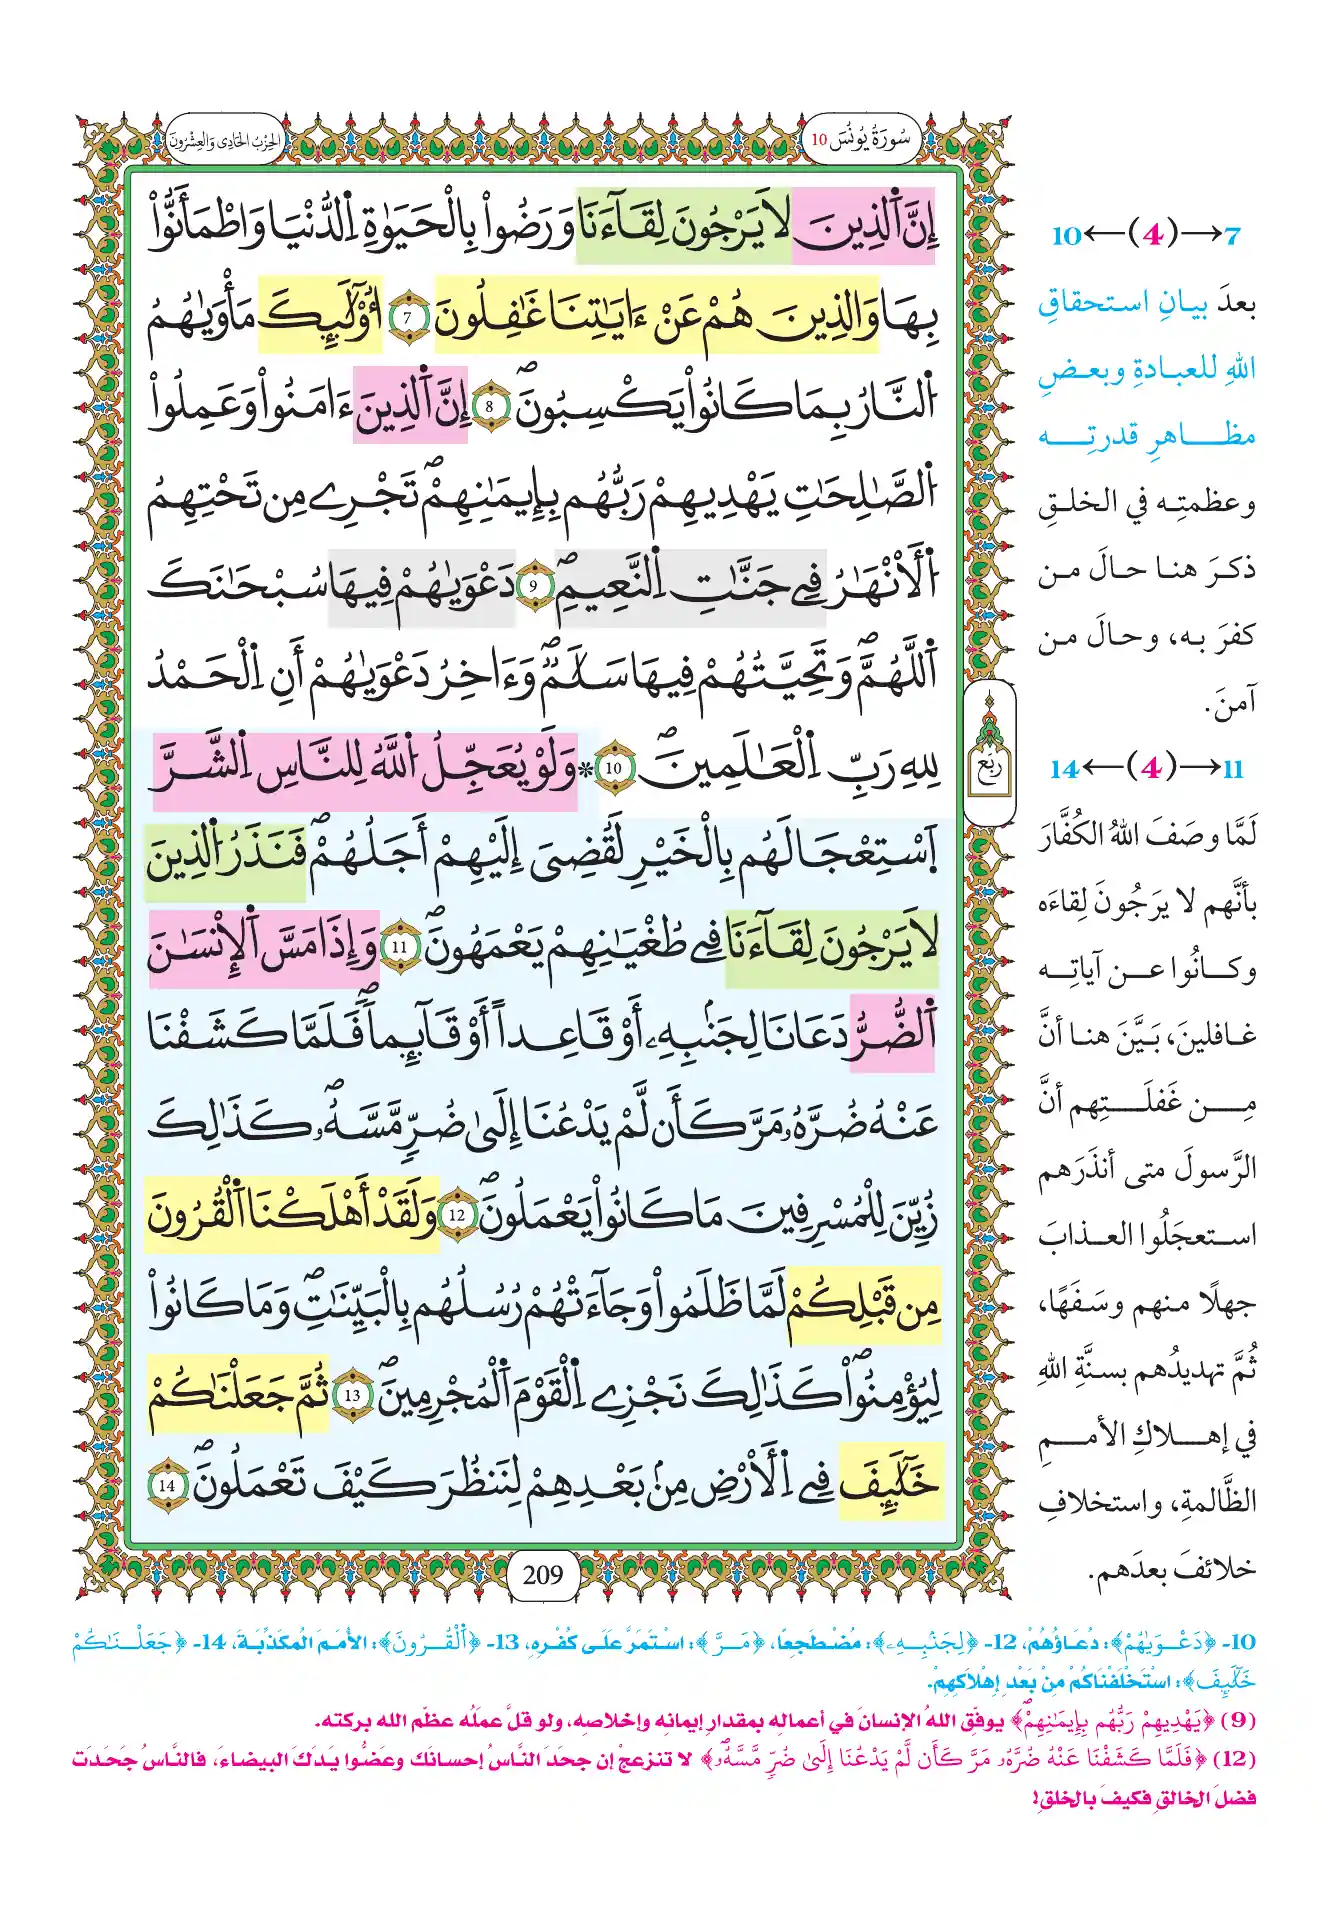 سُورَةُ يُونُسَ 10
الحِزْبُ الحَادِي وَالعِشْرُونَ
إِنَّ اَ۬لذِينَ لَا يَرْجُونَ لِقَآءَنَا وَرَضُواْ بِالْحَيَوٰةِ اِ۬لدُّنْي۪ا وَاطْمَأَنُّواْ
بِهَا وَالذِينَ هُمْ عَنْ ءَايَٰتِنَا غَٰفِلُونَ 7 أُوْلَٰٓئِكَ مَأْوَيٰهُمُ
اُ۬لنَّارُ بِمَا كَانُواْ يَكْسِبُونَۖ 8 إِنَّ اَ۬لذِينَ ءَامَنُواْ وَعَمِلُواْ
اُ۬لصَّٰلِحَٰتِ يَهْدِيهِمْ رَبُّهُم بِإِيمَٰنِهِمْۖ تَجْرِے مِن تَحْتِهِمُ
اُ۬لَانْهَٰرُ فِے جَنَّٰتِ اِ۬لنَّعِيمِۖ 9 دَعْوَيٰهُمْ فِيهَا سُبْحَٰنَكَ
اَ۬للَّهُمَّۖ وَتَحِيَّتُهُمْ فِيهَا سَلَٰمٞۖ وَءَاخِرُ دَعْوَيٰهُمْ أَنِ اِ۬لْحَمْدُ
لِلهِ رَبِّ اِ۬لْعَٰلَمِينَۖ 10 * وَلَوْ يُعَجِّلُ اُ۬للَّهُ لِلنَّاسِ اِ۬لشَّرَّ
اَ۪سْتِعْجَالَهُم بِالْخَيْرِ لَقُضِيَ إِلَيْهِمْ أَجَلُهُمْۖ فَنَذَرُ اُ۬لذِينَ
لَا يَرْجُونَ لِقَآءَنَا فِے طُغْيَٰنِهِمْ يَعْمَهُونَۖ 11 وَإِذَا مَسَّ اَ۬لِانسَٰنَ
اَ۬لضُّرُّ دَعَانَا لِجَنۢبِهِۦٓ أَوْ قَاعِداً أَوْ قَآئِماٗۖ فَلَمَّا كَشَفْنَا
عَنْهُ ضُرَّهُۥ مَرَّ كَأَن لَّمْ يَدْعُنَآ إِلَىٰ ضُرّٖ مَّسَّهُۥۖ كَذَٰلِكَ
زُيِّنَ لِلْمُسْرِفِينَ مَا كَانُواْ يَعْمَلُونَۖ 12 وَلَقَدْ أَهْلَكْنَا اَ۬لْقُرُونَ
مِن قَبْلِكُمْ لَمَّا ظَلَمُواْ وَجَآءَتْهُمْ رُسُلُهُم بِالْبَيِّنَٰتِۖ وَمَا كَانُواْ
لِيُؤْمِنُواْۖ كَذَٰلِكَ نَجْزِے اِ۬لْقَوْمَ اَ۬لْمُجْرِمِينَۖ 13 ثُمَّ جَعَلْنَٰكُمْ
خَلَٰٓئِفَ فِے اِ۬لَارْضِ مِنۢ بَعْدِهِمْ لِنَنظُرَ كَيْفَ تَعْمَلُونَۖ 14
رُبُع
209
7→(4)←10
بعدَ بيانِ استحقاقِ
اللهِ للعبادةِ وبعضِ
مظاهرِ قدرتِه
وعظمتِه في الخلقِ
ذكرَ هنا حالَ من
كفرَ به، وحالَ من
آمنَ.
11→(4)←14
لَمَّا وصَفَ اللهُ الكُفَّارَ
بأنَّهم لا يَرجُونَ لِقاءَه
وكانُوا عن آياتِه
غافلينَ، بَيَّنَ هنا أنَّ
مِن غَفلَتِهم أنَّ
الرَّسولَ متى أنذَرَهم
استعجَلُوا العذابَ
جهلًا منهم وسَفَهًا،
ثُمَّ تهديدُهم بسنَّةِ اللهِ
في إهلاكِ الأممِ
الظَّالمةِ، واستخلافِ
خلائفَ بعدَهم.
10- ﴿دَعْوَيٰهُمْ﴾: دُعَاؤُهُمْ، 12- ﴿لِجَنۢبِهِۦٓ﴾: مُضْطَجِعًا، ﴿مَرَّ﴾: اسْتَمَرَّ عَلَى كُفْرِهِ، 13- ﴿اَ۬لْقُرُونَ﴾: الأُمَمَ الْمُكَذِّبَةَ، 14- ﴿جَعَلْنَٰكُمْ
خَلَٰٓئِفَ﴾: اسْتَخْلَفْنَاكُمْ مِنْ بَعْدِ إِهْلَاكِهِمْ.
(9) ﴿يَهْدِيهِمْ رَبُّهُم بِإِيمَٰنِهِمْۖ﴾ يوفّق اللهُ الإنسانَ في أعماله بمقدارِ إيمانِه وإخلاصِه، ولو قلَّ عملُه عظّم الله بركته.
(12) ﴿فَلَمَّا كَشَفْنَا عَنْهُ ضُرَّهُۥ مَرَّ كَأَن لَّمْ يَدْعُنَآ إِلَىٰ ضُرّٖ مَّسَّهُۥۖ﴾ لا تنزعجْ إن جحدَ النَّاسُ إحسانَك وعَضُّوا يدَكَ البيضاءَ، فالنَّاسُ جَحَدَت
فضلَ الخالقِ فكيفَ بالخلقِ!